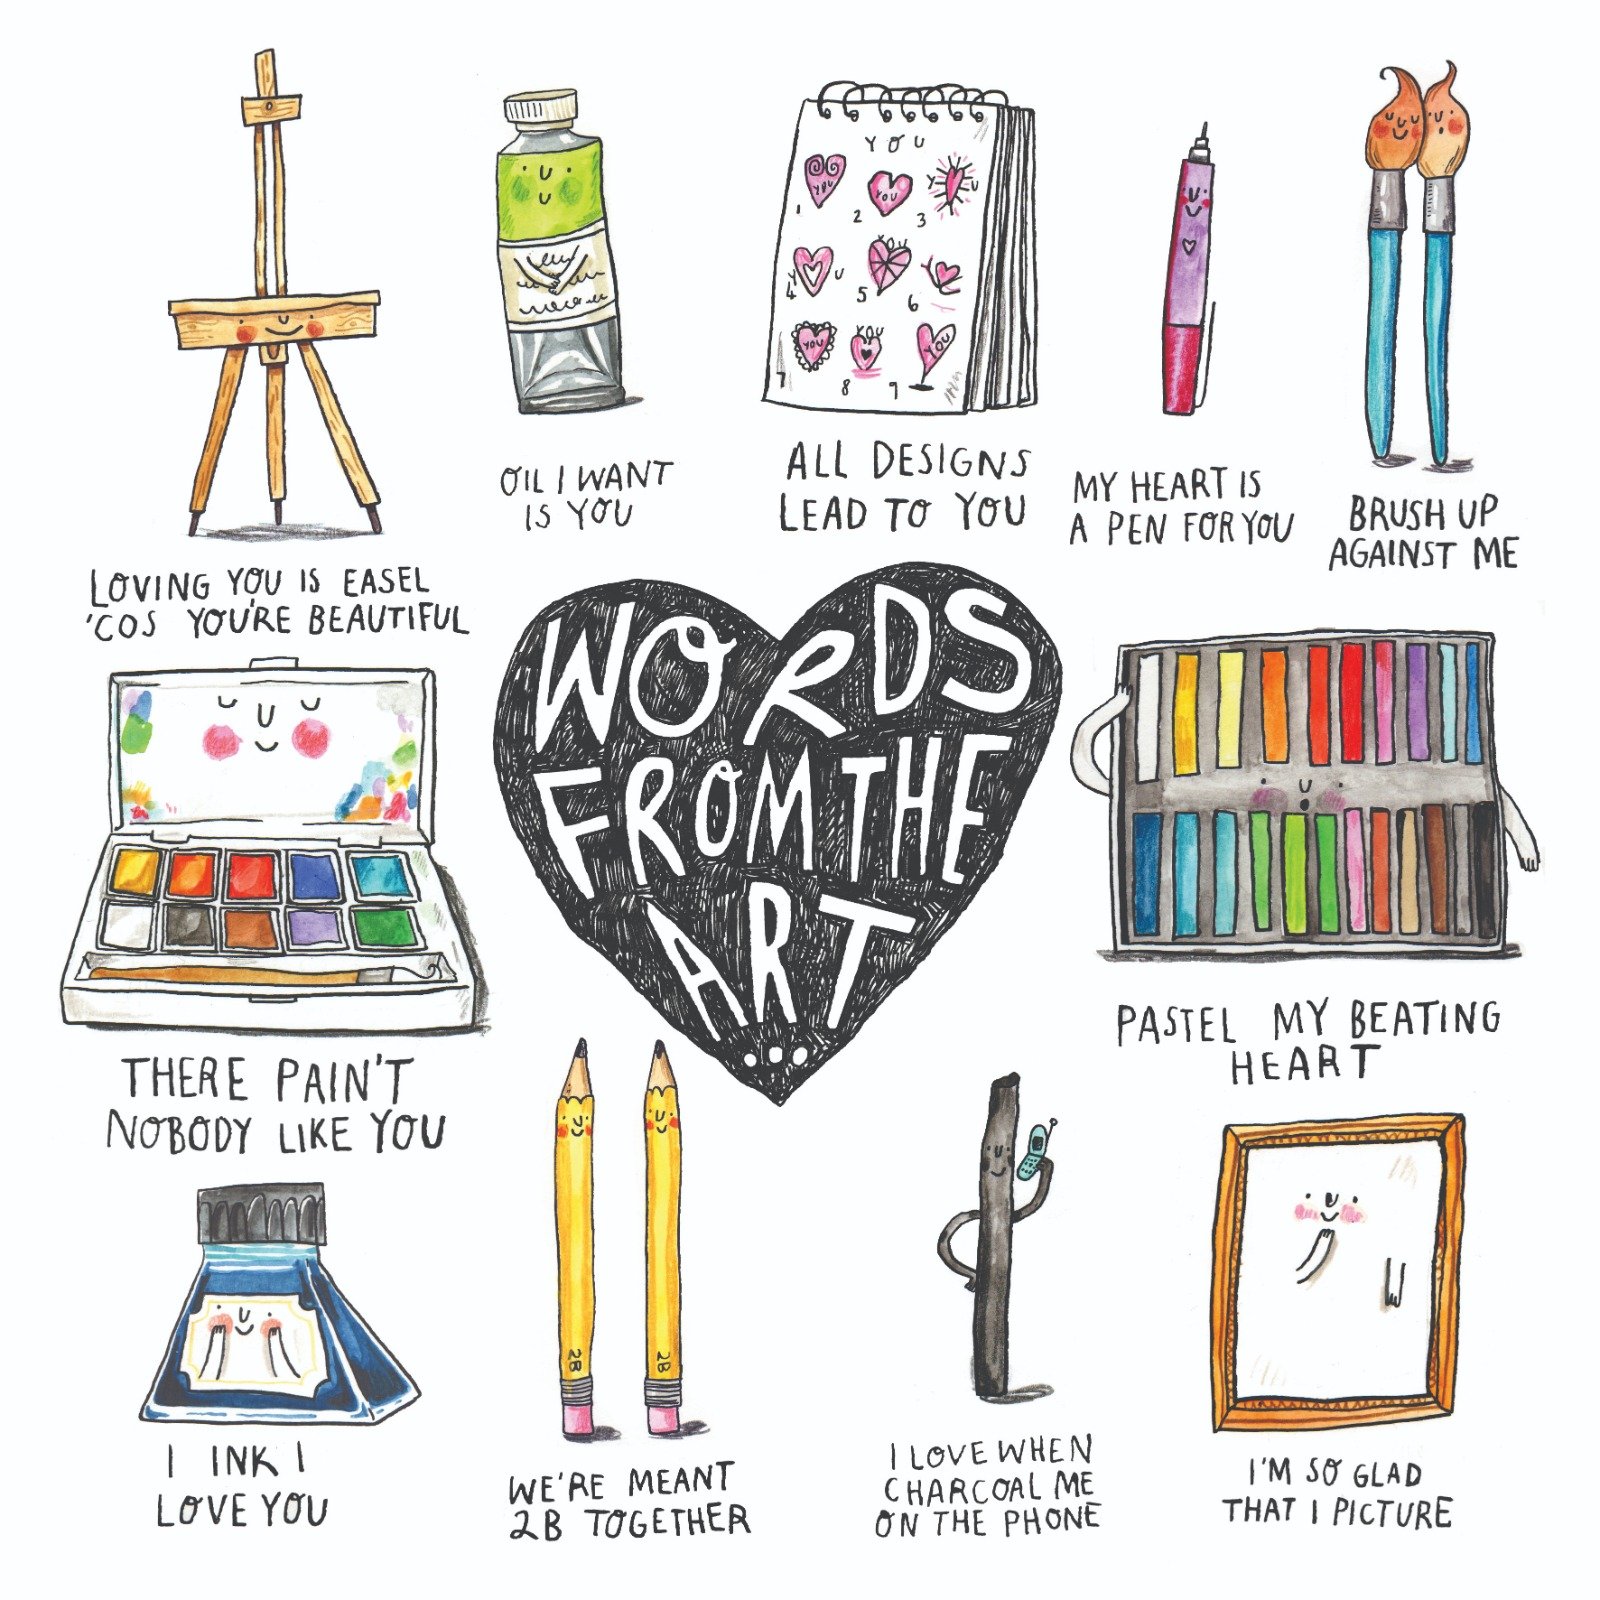 YOU
YOU
YOU
Y U
1
2
3
Y U
YOU
Y
4
5
6
YOU
YOU
YOU
7
8
9
OIL I WANT
IS YOU
ALL DESIGNS
LEAD TO YOU
MY HEART IS
A PEN FOR YOU
BRUSH UP
AGAINST ME
LOVING YOU IS EASEL
'COS YOU'RE BEAUTIFUL
WORDS
FROM THE
ART
...
THERE PAIN'T
NOBODY LIKE YOU
PASTEL MY BEATING
HEART
2B
2B
I INK I
LOVE YOU
WE'RE MEANT
2B TOGETHER
I LOVE WHEN
CHARCOAL ME
ON THE PHONE
I'M SO GLAD
THAT I PICTURE